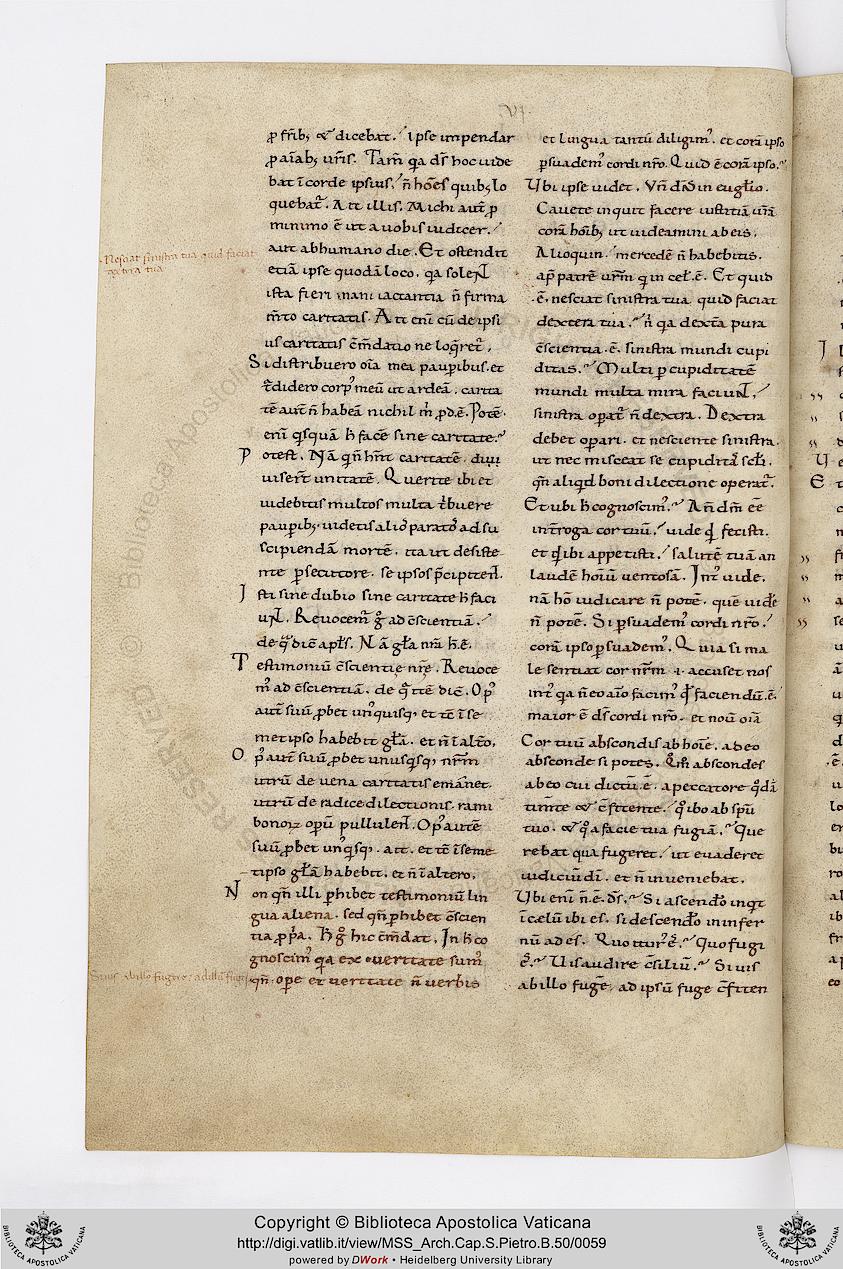 VI.
Nesciat sinistra tua quid faciat
dextera tua
Si uis ab illo fugere. ad illū fuge
ꝓ fr̄ib; & dicebat. Ipse impendar
ꝓ aīab; ur̄is. Tam̄ qa dn̄s hoc uide
bat ī corde ipsius, n̄ hoēs quib; lo
quebat᷑. Ait illis. Michi aut̄ ꝓ
minimo ē ut a uobis iudicer.
aut ab humano die. Et ostendit
etiā ipse quodā loco. qa solent
ista fieri inani iactantia n̄ firma
m̄to caritatis. Ait enī cū de ipsi
us caritatis cōm̄datio ne loq̄ret᷑.
Si distribuero oīa mea pauꝑibus. et
t̄didero corp᷒ meū ut ardeā. carita
tē aut̄ n̄ habeā nichil m̄ ꝓd.ē. Potē
enī qisquā h̄ facē sine caritate.
Potest. Nā qi n̄ hn̄t caritatē diui
iserī unitatē. Querite ibi et
uidebitis multos multa t̄buere
pauꝑib;. uidetis alios parato᷒ ad su
scipiendā mortē. ita ut desiste
nte ꝑsecutore. se ipsos p̄cipitent.
Isti sine dubio sine caritate h̄ faci
unt. Reuocem᷒ gͦ ad c̄scientiā.
de qͣ dic̄ apl̄s. Nā gl̄a nr̄a h̄.ē.
Testimoniū c̄scientię nr̄ę. Reuoce
m᷒ ad c̄scientiā. de qͣ itē dic̄. Op᷒
aut̄ suū ꝓbet un᷒quisq; et tc̄ ī se
met ipso habebit gl̄ā. et n̄ ī altō.
Op᷒ aut̄ suū ꝓbet unusqisq; nr̄m
utrū de uena caritatis emānet.
utrū de radice dilectionis. rami
bonoꝝ opū pullulent. Op᷒ autē
suū ꝓbet un᷒qisq;. ait. et tc̄ ī seme
tipso gl̄ā habebit. et n̄ ī altero.
Non qn̄ illi ꝑhibet testimoniū lin
gua aliena. sed qn̄ ꝑhibet c̄scien
tia ꝓp̄a. H̄ gͦ hic cōm̄dat. In h̄ co
gnoscim᷒ qa ex ueritate sum᷒
qn̄. ope et ueritate n̄ uerbis
et lingua tantū diligim᷒. et corā ipso
ꝑsuadem᷒ cordi nr̄o. Quid ē corā ipso.
Ubi ipse uidet. Vn̄ dn̄s in euglīo.
Cauete inquit facere iustitiā ur̄ā
corā hoīb; ut uideamini ab eis.
Alioquin. mercedē n̄ habebitis.
ap̄ patrē ur̄m qi in cel̄.ē. Et quid
.ē. nesciat sinistra tua quid faciat
dextera tua. n̄ qa dext̄a pura
c̄scientia.ē. sinistra mundi cupi
ditas. Multi ꝑ cupiditatē
mundi multa mira faciunt,
sinistra opat᷑ n̄ dextra. Dextra
debet opari. et nesciente sinistra.
ut nec misceat se cupiditas scl̄i.
qn̄ aliqd boni dilectione operat᷑.
Et ubi h̄ cognoscim᷒. An̄ dm̄ eē
int̄roga cor tuū. uide qd fecisti.
et qd ibi appetisti. salutē tuā an
laudē hoiū uentosā. Int᷒ uide.
nā ho iudicare n̄ potē. quē uidē
n̄ potē. Si ꝑsuadem᷒ cordi nr̄o.
corā ipso ꝑsuadem᷒. Quia si ma
le sentiat cor nr̄m .i. accuset nos
int᷒ qa n̄ eo aīo facim᷒ qͦ faciendū.ē.
maior ē ds̄ cordi nr̄o. et nouit oīa
Cor tuū abscondis ab hoīe. a deo
absconde si potes. Qͦm abscondes
ab eo cui dictū.ē. a peccatore qͦdā
tim̄te & c̄fitente. qͦ ibo ab sp̄u
tuo. & qͦ a facie tua fugiā. Que
rebat qua fugeret. ut euaderet
iudiciū dī. et n̄ inueniebat.
Ubi enī n̄.ē.ds̄. Si ascendo inqit
ī cælū ibi es. si descendo in infer
nū ades. Quo itur᷒ es. Quo fugi
es. Uis audire c̄siliū. Si uis
ab illo fugē. ad ipsū fuge c̄fiten